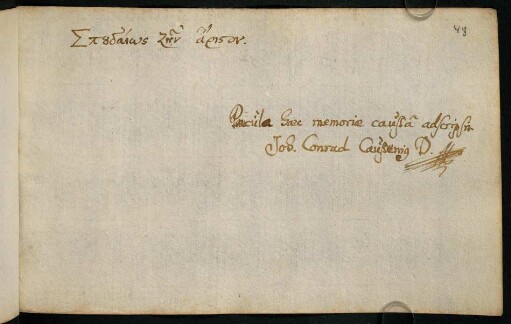 48
Σπουδαίως ζῆν ἄριστον.
Paucula haec memoriae causâ adscripsit
Joh. Conrad D.